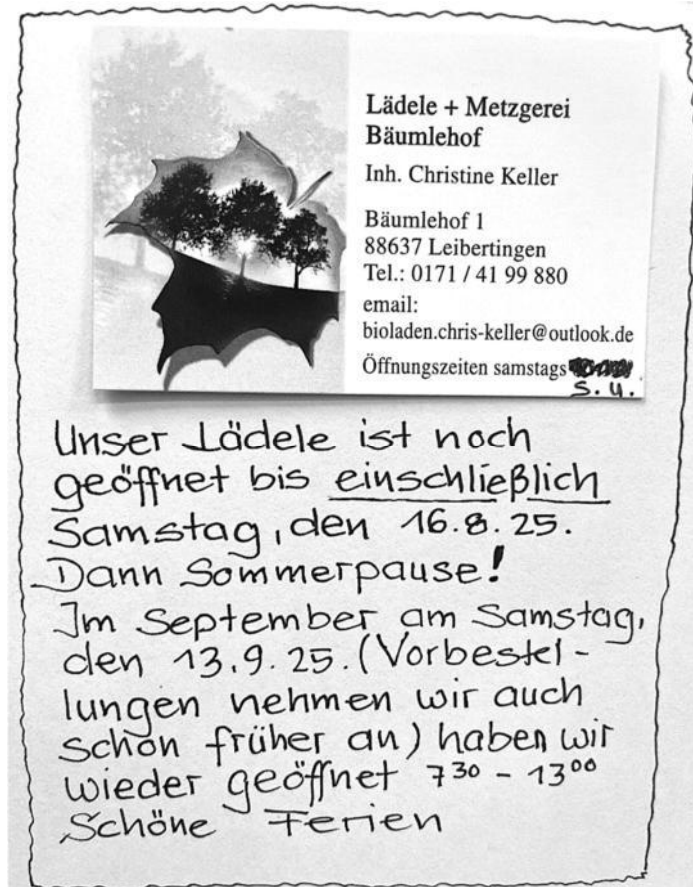 Lädele + Metzgerei
Bäumlehof
Inh. Christine Keller
Bäumlehof 1
88637 Leibertingen
Tel.: 0171 / 41 99 880
email:
bioladen.chris-keller@outlook.de
Öffnungszeiten samstags
s. u.
Unser Lädele ist noch
geöffnet bis einschließlich
Samstag, den 16.8.25.
Dann Sommerpause!
Im September am Samstag,
den 13.9.25. (Vorbestel-
lungen nehmen wir auch
schon früher an) haben wir
wieder geöffnet 7³⁰ - 13⁰⁰
Schöne Ferien